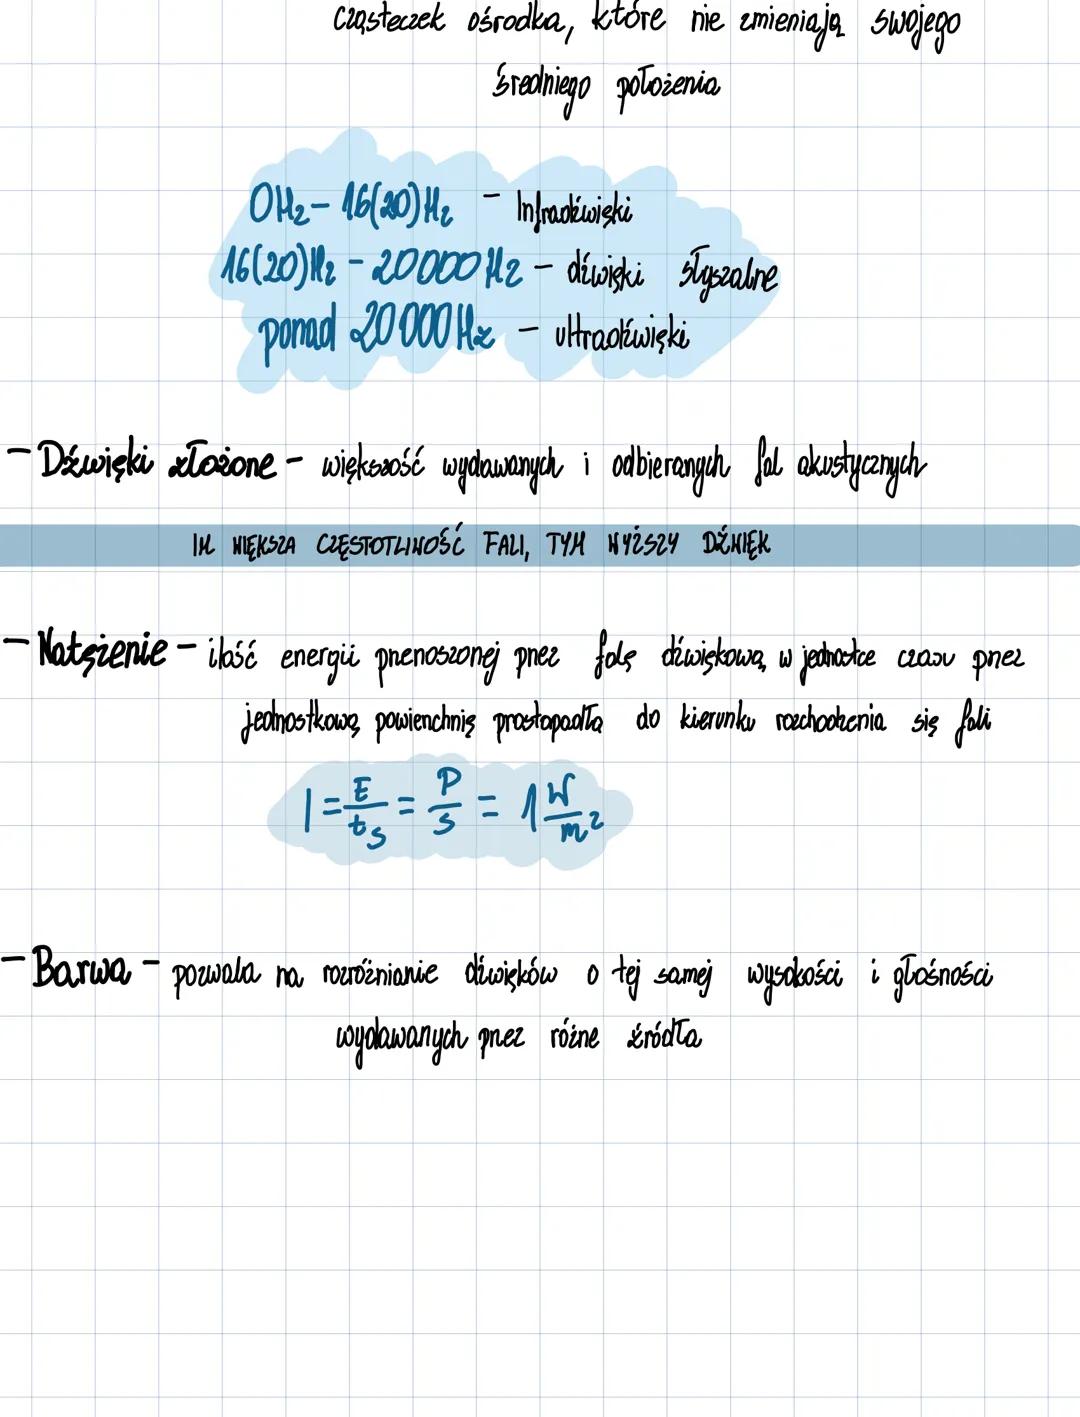 cząsteczek ośrodka, które nie zmieniają swojego
średniego położenia
0Hz – 16(20)Hz – Infradźwięki
16(20)Hz – 20000Hz – dźwięki słyszalne
ponad 20000Hz – ultradźwięki
– Dźwięki złożone – większość wydawanych i odbieranych fal akustycznych
IM WIĘKSZA CZĘSTOTLIWOŚĆ FALI, TYM WYŻSZY DŹWIĘK
– Natężenie – ilość energii przenoszonej przez falę dźwiękową w jednostce czasu przez
jednostkową powierzchnię prostopadłą do kierunku rozchodzenia się fali
I = E/ts = P/s = 1 W/m²
– Barwa – pozwala na rozróżnianie dźwięków o tej samej wysokości i głośności
wydawanych przez różne źródła